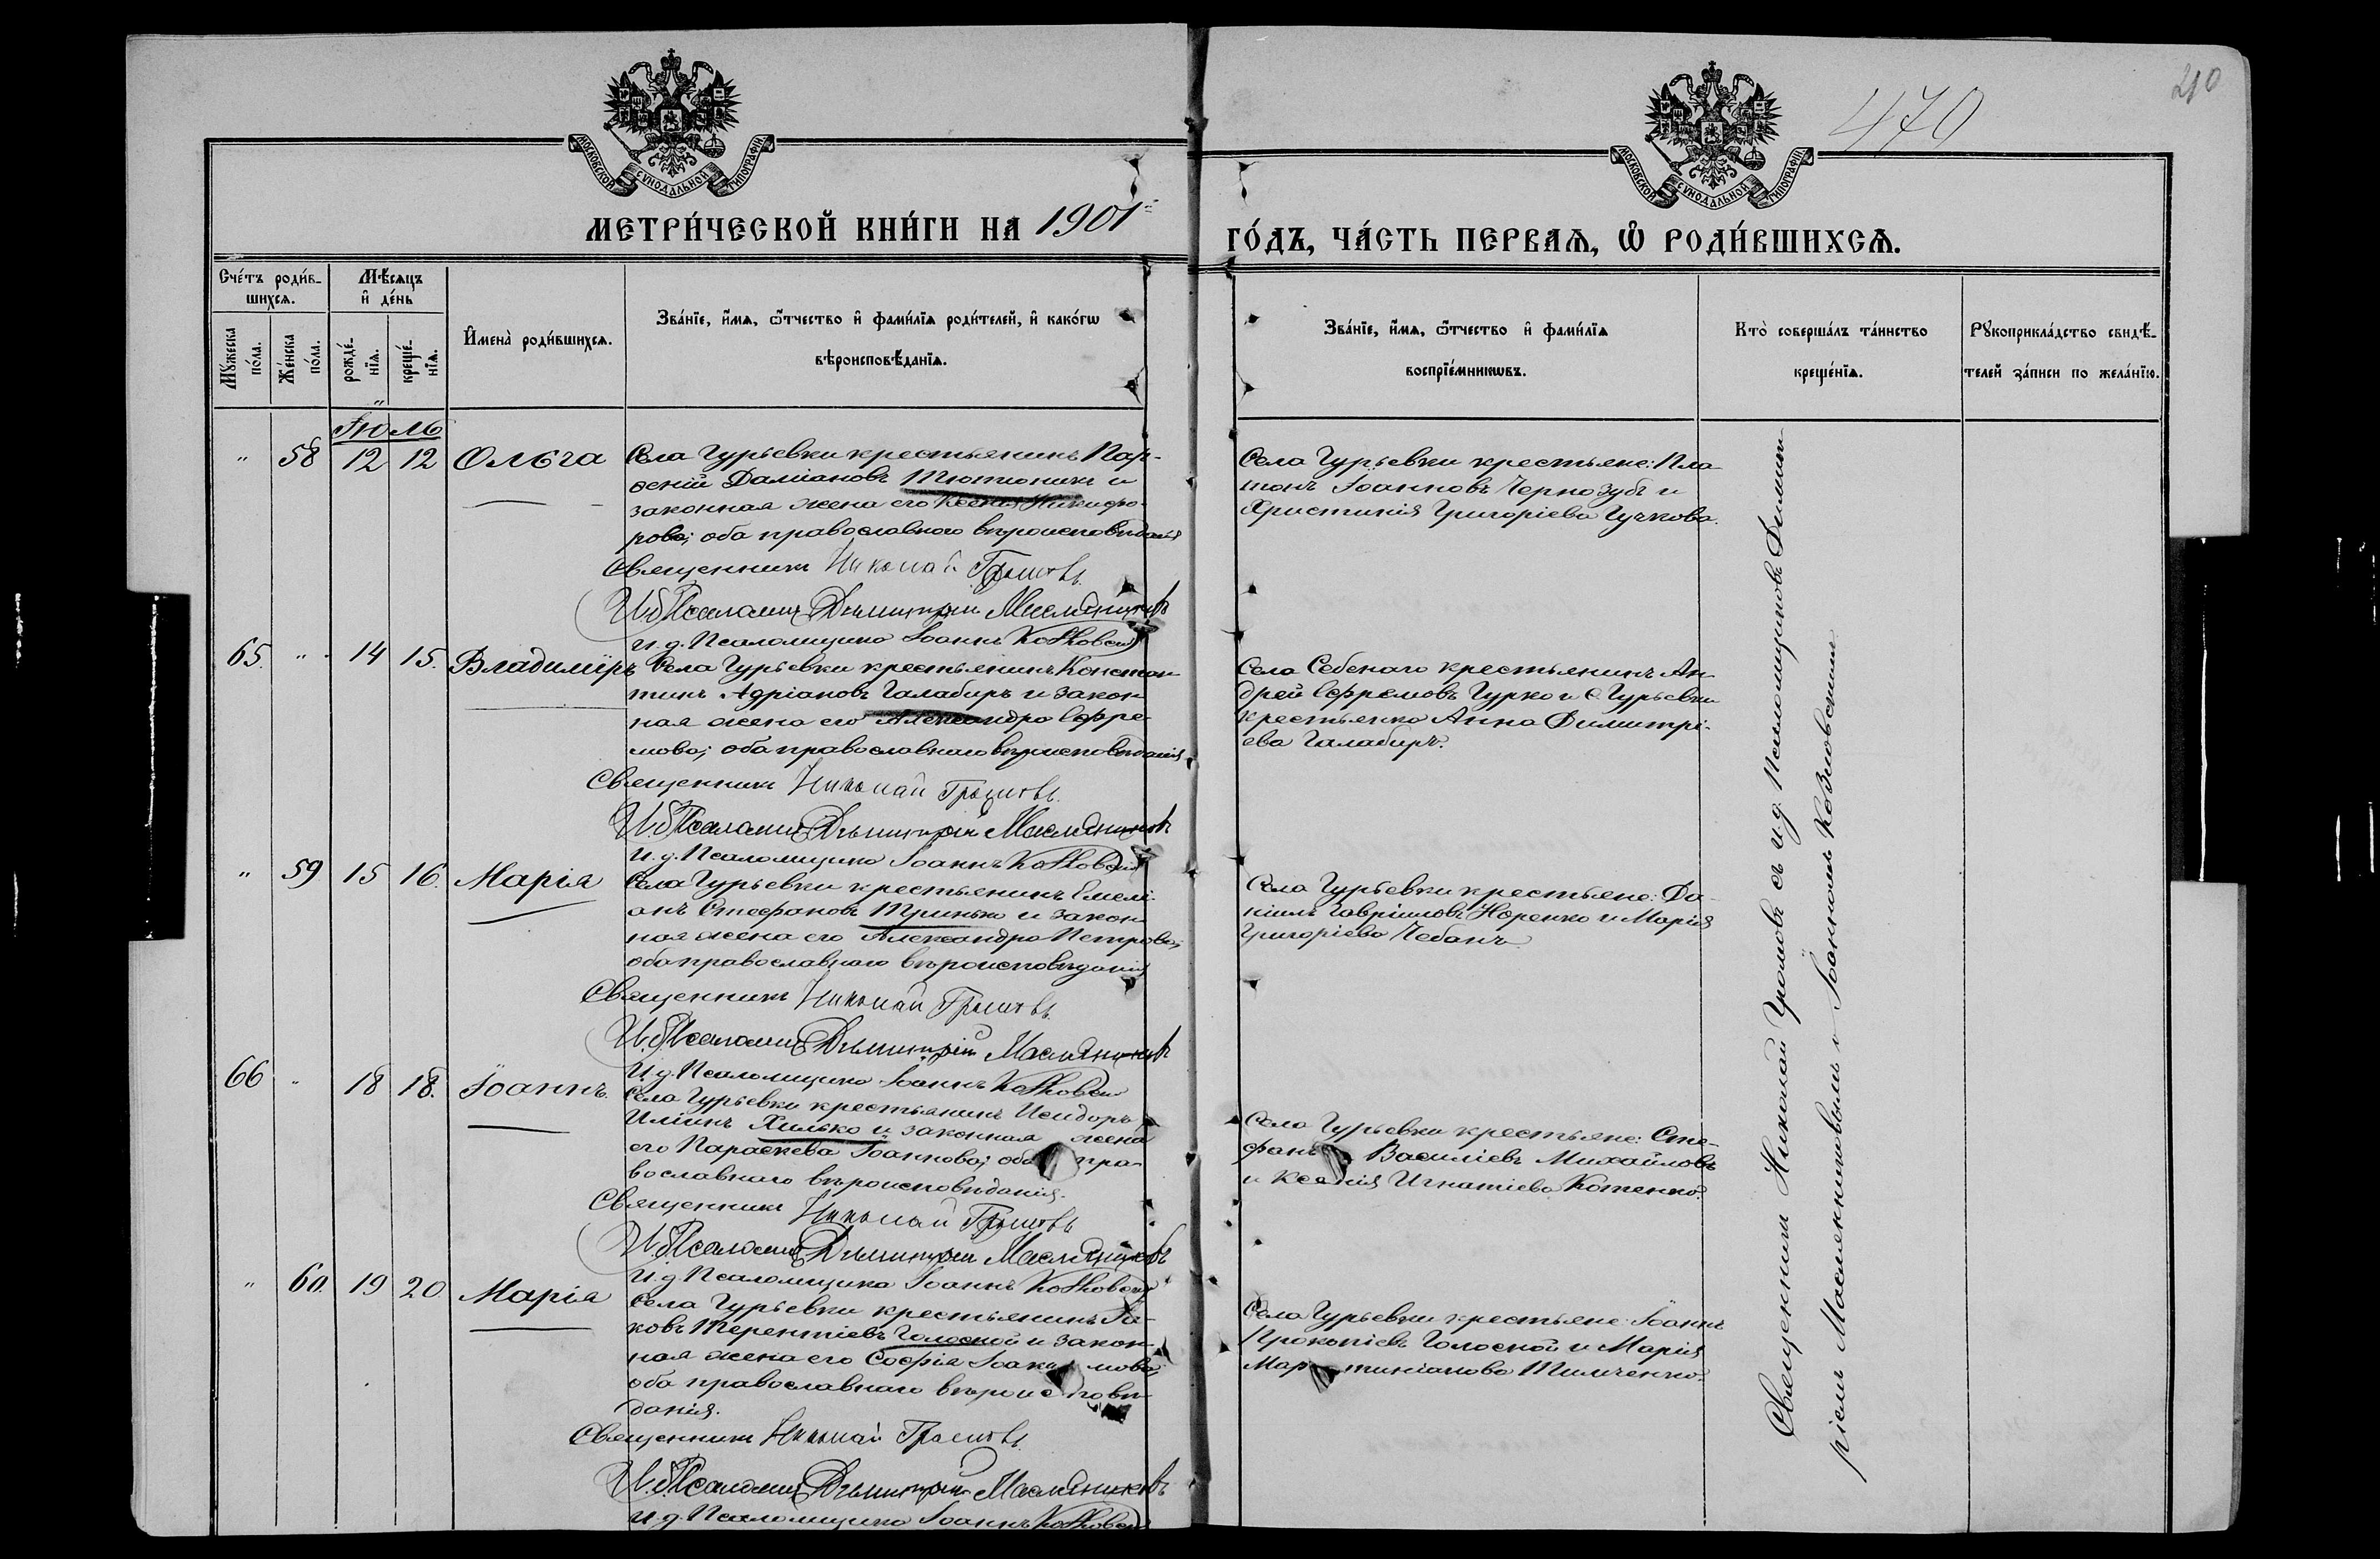 210
470
МОСКОВСКОЙ СѴНОДАЛЬНОЙ ТИПОГРАФІИ
МОСКОВСКОЙ СѴНОДАЛЬНОЙ ТИПОГРАФІИ
МЕТРИ́ЧЕСКОЙ КНИ́ГИ НА 1901
ГО́ДЪ, ЧА́СТЬ ПЕРВАѦ, Ѽ РОДИ́ВШИХСѦ.
Сче́тъ роди́в-
шихсѧ.
Мѣ́сѧцъ
и҆ де́нь
Мꙋжеска
по́ла.
Же́нска
по́ла.
рожде́-
нїѧ.
креще́-
нїѧ.
И҆мена̀ роди́вшихсѧ.
Зва́нїе, и҆́мѧ, ѻ҆́тчество и҆ фами́лїѧ роди́телей, и҆ како́гѡ
вѣроисповѣ́данїѧ.
Зва́нїе, и҆́мѧ, ѻ҆́тчество и҆ фами́лїѧ
воспрїе́мникѡвъ.
Кто̀ соверша́лъ та́инство
креще́нїѧ.
Рꙋкоприкла́дство свидѣ́-
телей за́писи по жела́нїю.
Іюль
" 58 12 12 Ольга
Села Гурьевки крестьянинъ Пар-
ѳеній Даміановъ Тютюникъ и
законная жена его Ксенія Никифо-
рова; оба православнаго вѣроисповѣданія
Священникъ Николай Громовъ.
И.д. Псаломщ. Димитрій Маслянниковъ
и.д. Псаломщика Іоаннъ Козловскій
Села Гурьевки крестьяне: Пла-
тонъ Іоанновъ Чернозубъ и
Христинія Григоріева Гучкова.
65. " 14 15. Владиміръ
Села Гурьевки крестьянинъ Констан-
тинъ Адріановъ Галабиръ и закон-
ная жена его Александра Ефре-
мова; оба православнаго вѣроисповѣданія
Священникъ Николай Громовъ.
И.д. Псаломщ. Димитрій Маслянниковъ
И.д. Псаломщика Іоаннъ Козловскій
Села Себенаго крестьянинъ Ан-
дрей Ефремовъ Гурко и с. Гурьевки
крестьянка Анна Димитрі-
ева Галабиръ.
" 59 15 16. Марія
Села Гурьевки крестьянинъ Емелі-
анъ Стефановъ Тринько и закон-
ная жена его Александра Петрова;
оба православнаго вѣроисповѣданія
Священникъ Николай Громовъ.
И.д. Псаломщ. Димитрій Маслянниковъ
И.д. Псаломщика Іоаннъ Козловскій
Села Гурьевки крестьяне: Да-
ніилъ Гавріиловъ Норенко и Марія
Григоріева Чебанъ.
66 " 18 18. Іоаннъ.
Села Гурьевки крестьянинъ Исидоръ
Иліинъ Хилько и законная жена
его Параскева Іоаннова; оба пра-
вославнаго вѣроисповѣданія.
Священникъ Николай Громовъ
И.д. Псаломщ. Димитрій Маслянниковъ
И.д. Псаломщика Іоаннъ Козловскій
Села Гурьевки крестьяне: Сте-
фанъ Василіевъ Михайловъ
и Ксенія Игнатіева Котенко.
" 60. 19 20 Марія
Села Гурьевки крестьянинъ Іа-
ковъ Терентіевъ Голоской и закон-
ная жена его Софія Іоакимова;
оба православнаго вѣроисповѣ-
данія.
Священникъ Николай Громовъ.
И.д. Псаломщ. Димитрій Маслянниковъ
и.д. Псаломщика Іоаннъ Козловскій
Села Гурьевки крестьяне: Іоаннъ
Прокопіевъ Голоской и Марія
Мартиніанова Тимченко.
Священникъ Николай Громовъ съ и.д. Псаломщиковъ Димит-
ріемъ Маслянниковымъ и Іоанномъ Козловскимъ